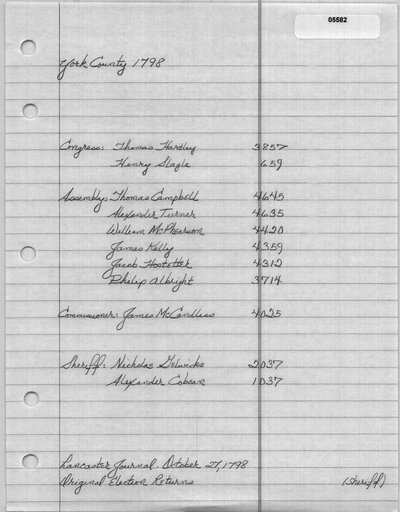 05582
York County 1798
Congress: Thomas Hartley 3857
Henry Slagle 659
Assembly: Thomas Campbell 4645
Alexander Turner 4635
William McPherson 4420
James Kelly 4359
Jacob Hostetter 4312
Philip Albright 3714
Commissioner: James McCandless 4025
Sheriff: Nicholas Gelwicks 2037
Alexander Cobean 1037
Lancaster Journal. October 27, 1798
Original Election Returns (Sheriff)